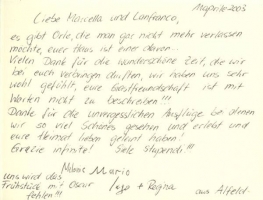 1 Aprile 2003
Liebe Marcella und Lanfranco,
es gibt Orte, die man gar nicht mehr verlassen
möchte, euer Haus ist einer davon...
Vielen Dank für die wunderschöne Zeit, die wir
bei euch verbringen durften, wir haben uns sehr
wohl gefühlt, eure Gastfreundschaft ist mit
Worten nicht zu beschreiben!!!
Danke für die unvergesslichen Ausflüge bei denen
wir so viel Schönes gesehen und erlebt und
eure Heimat lieben gelernt haben!
Grazie infinite! Siete stupendi!!!
Melanie Mario
uns wird das
Frühstück mit Oscar + Regina aus Alfeld
fehlen!!!